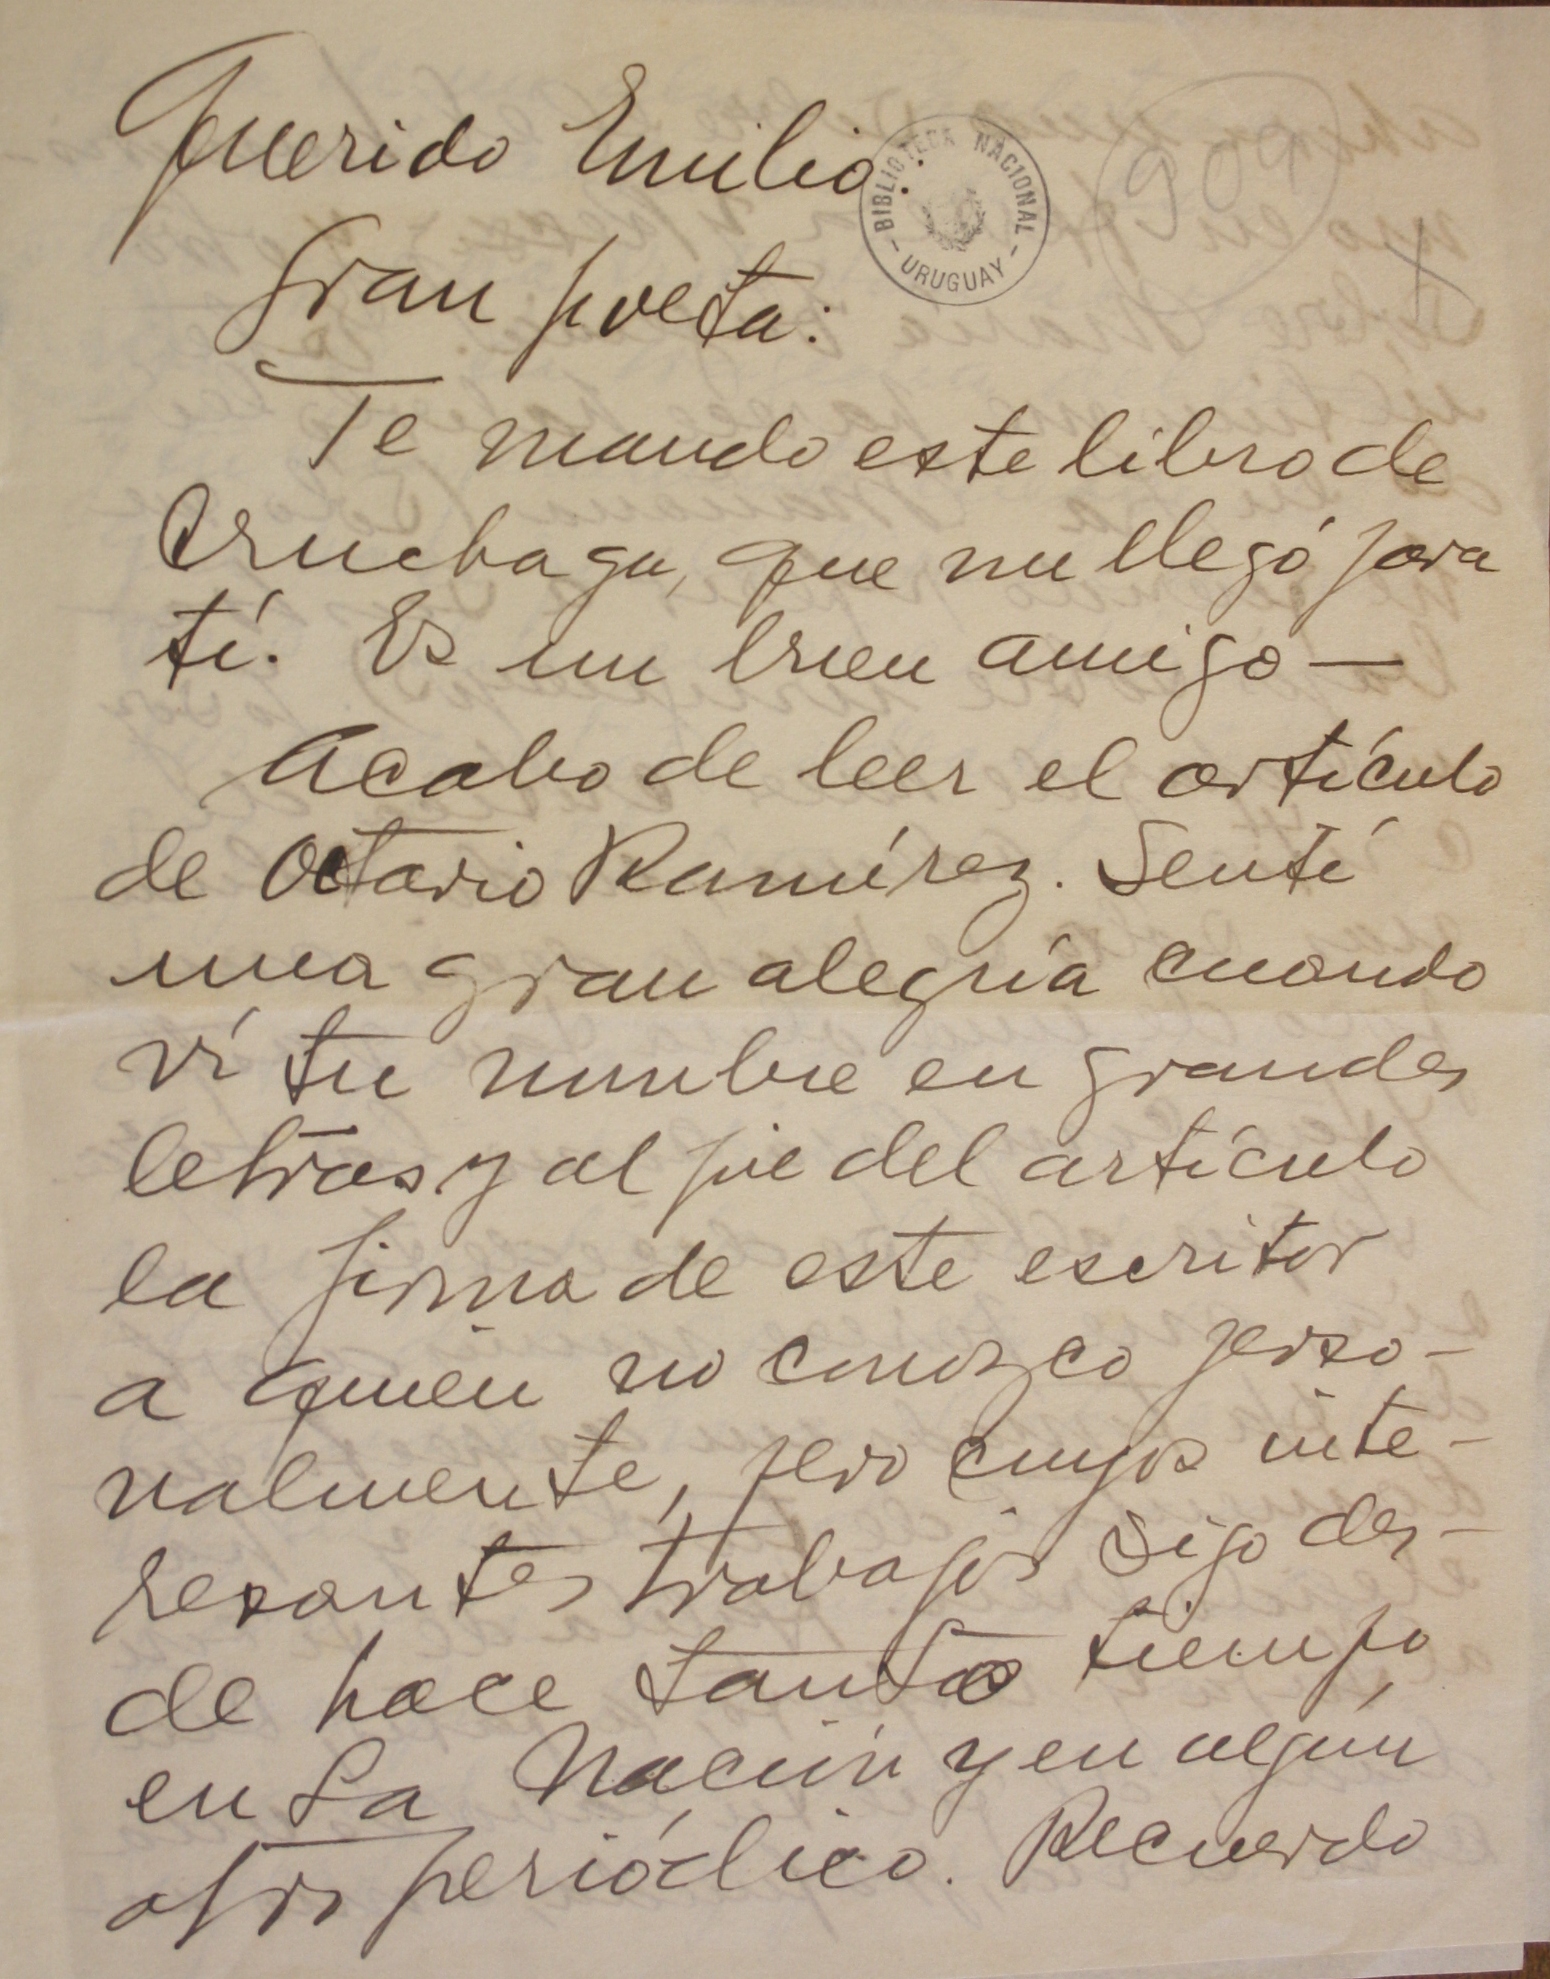 Querido Emilio:
BIBLIOTECA NACIONAL
- URUGUAY -
Gran poeta:
Te mando este libro de
Cruchaga, que me llegó para
tí. Es un buen amigo —
Acabo de leer el artículo
de Octavio Ramírez. Sentí
una gran alegría cuando
ví tu nombre en grandes
letras y al pie del artículo
la firma de este escritor
a quien no conozco perso-
nalmente, pero cuyos inte-
resantes trabajos sigo des-
de hace tanto tiempo
en La Nación y en algún
otro periódico. Recuerdo